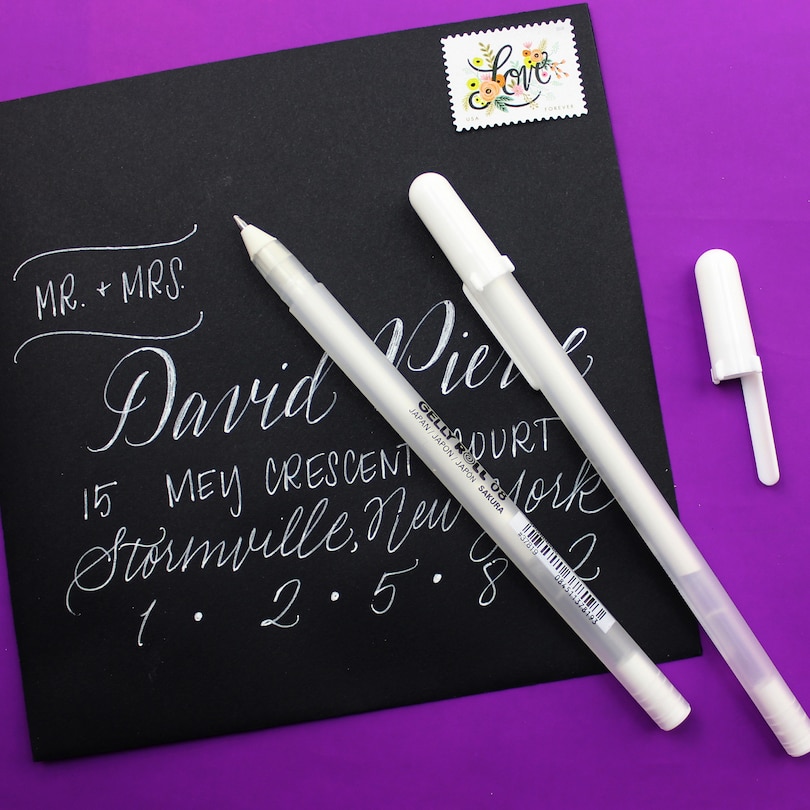 Love
USA FOREVER
MR. + MRS.
David
15 MEY CRESCENT COURT
Stormville, New York
1 • 2 • 5 • 8 2
GELLY ROLL 08
JAPAN / JAPON / JAPON SAKURA
#37819